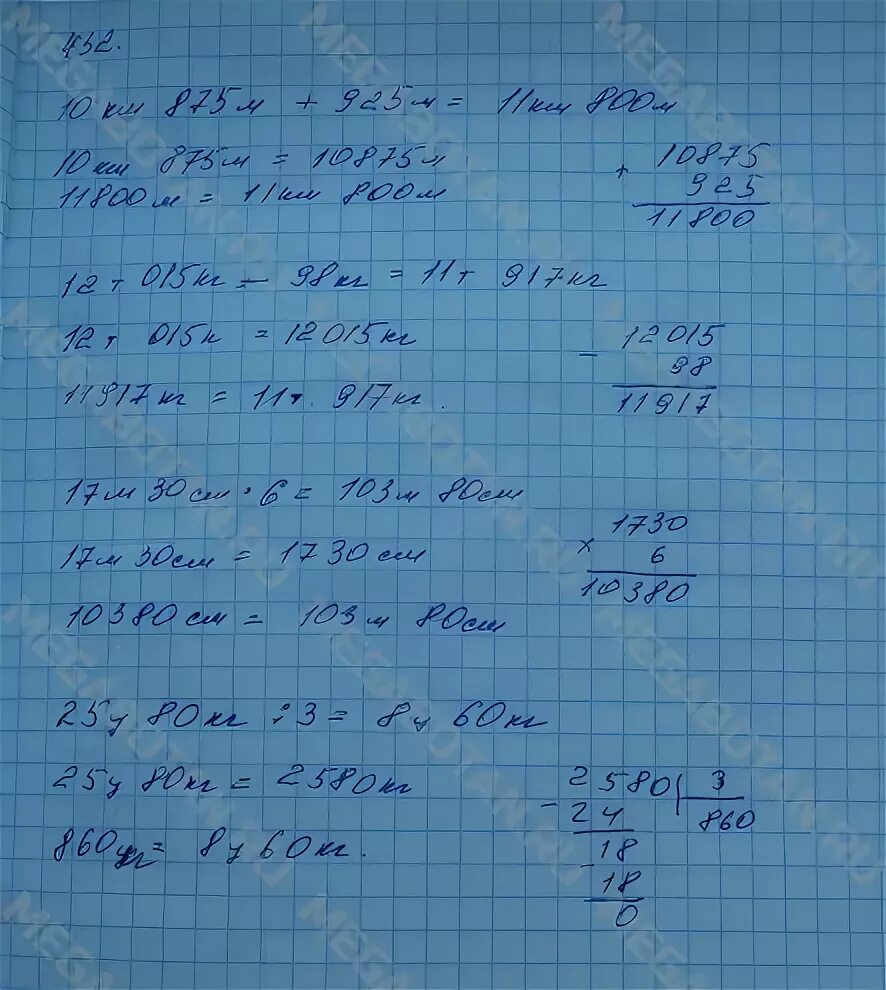 432.
10 км 875м + 925м = 11км 800м
10 км 875м = 10875м
11800м = 11км 800м
+ 10875
925
11800
12т 015кг - 98кг = 11т 917кг
12т 015к = 12015кг
11917кг = 11т. 917кг.
- 12015
98
11917
17м 30см · 6 = 103м 80см
17м 30см = 1730см
10380см = 103м 80см
x 1730
6
10380
25ц 80кг : 3 = 8ц 60кг
25ц 80кг = 2580кг
860кг = 8ц 60кг.
- 2580 3
24 860
18
- 18
0